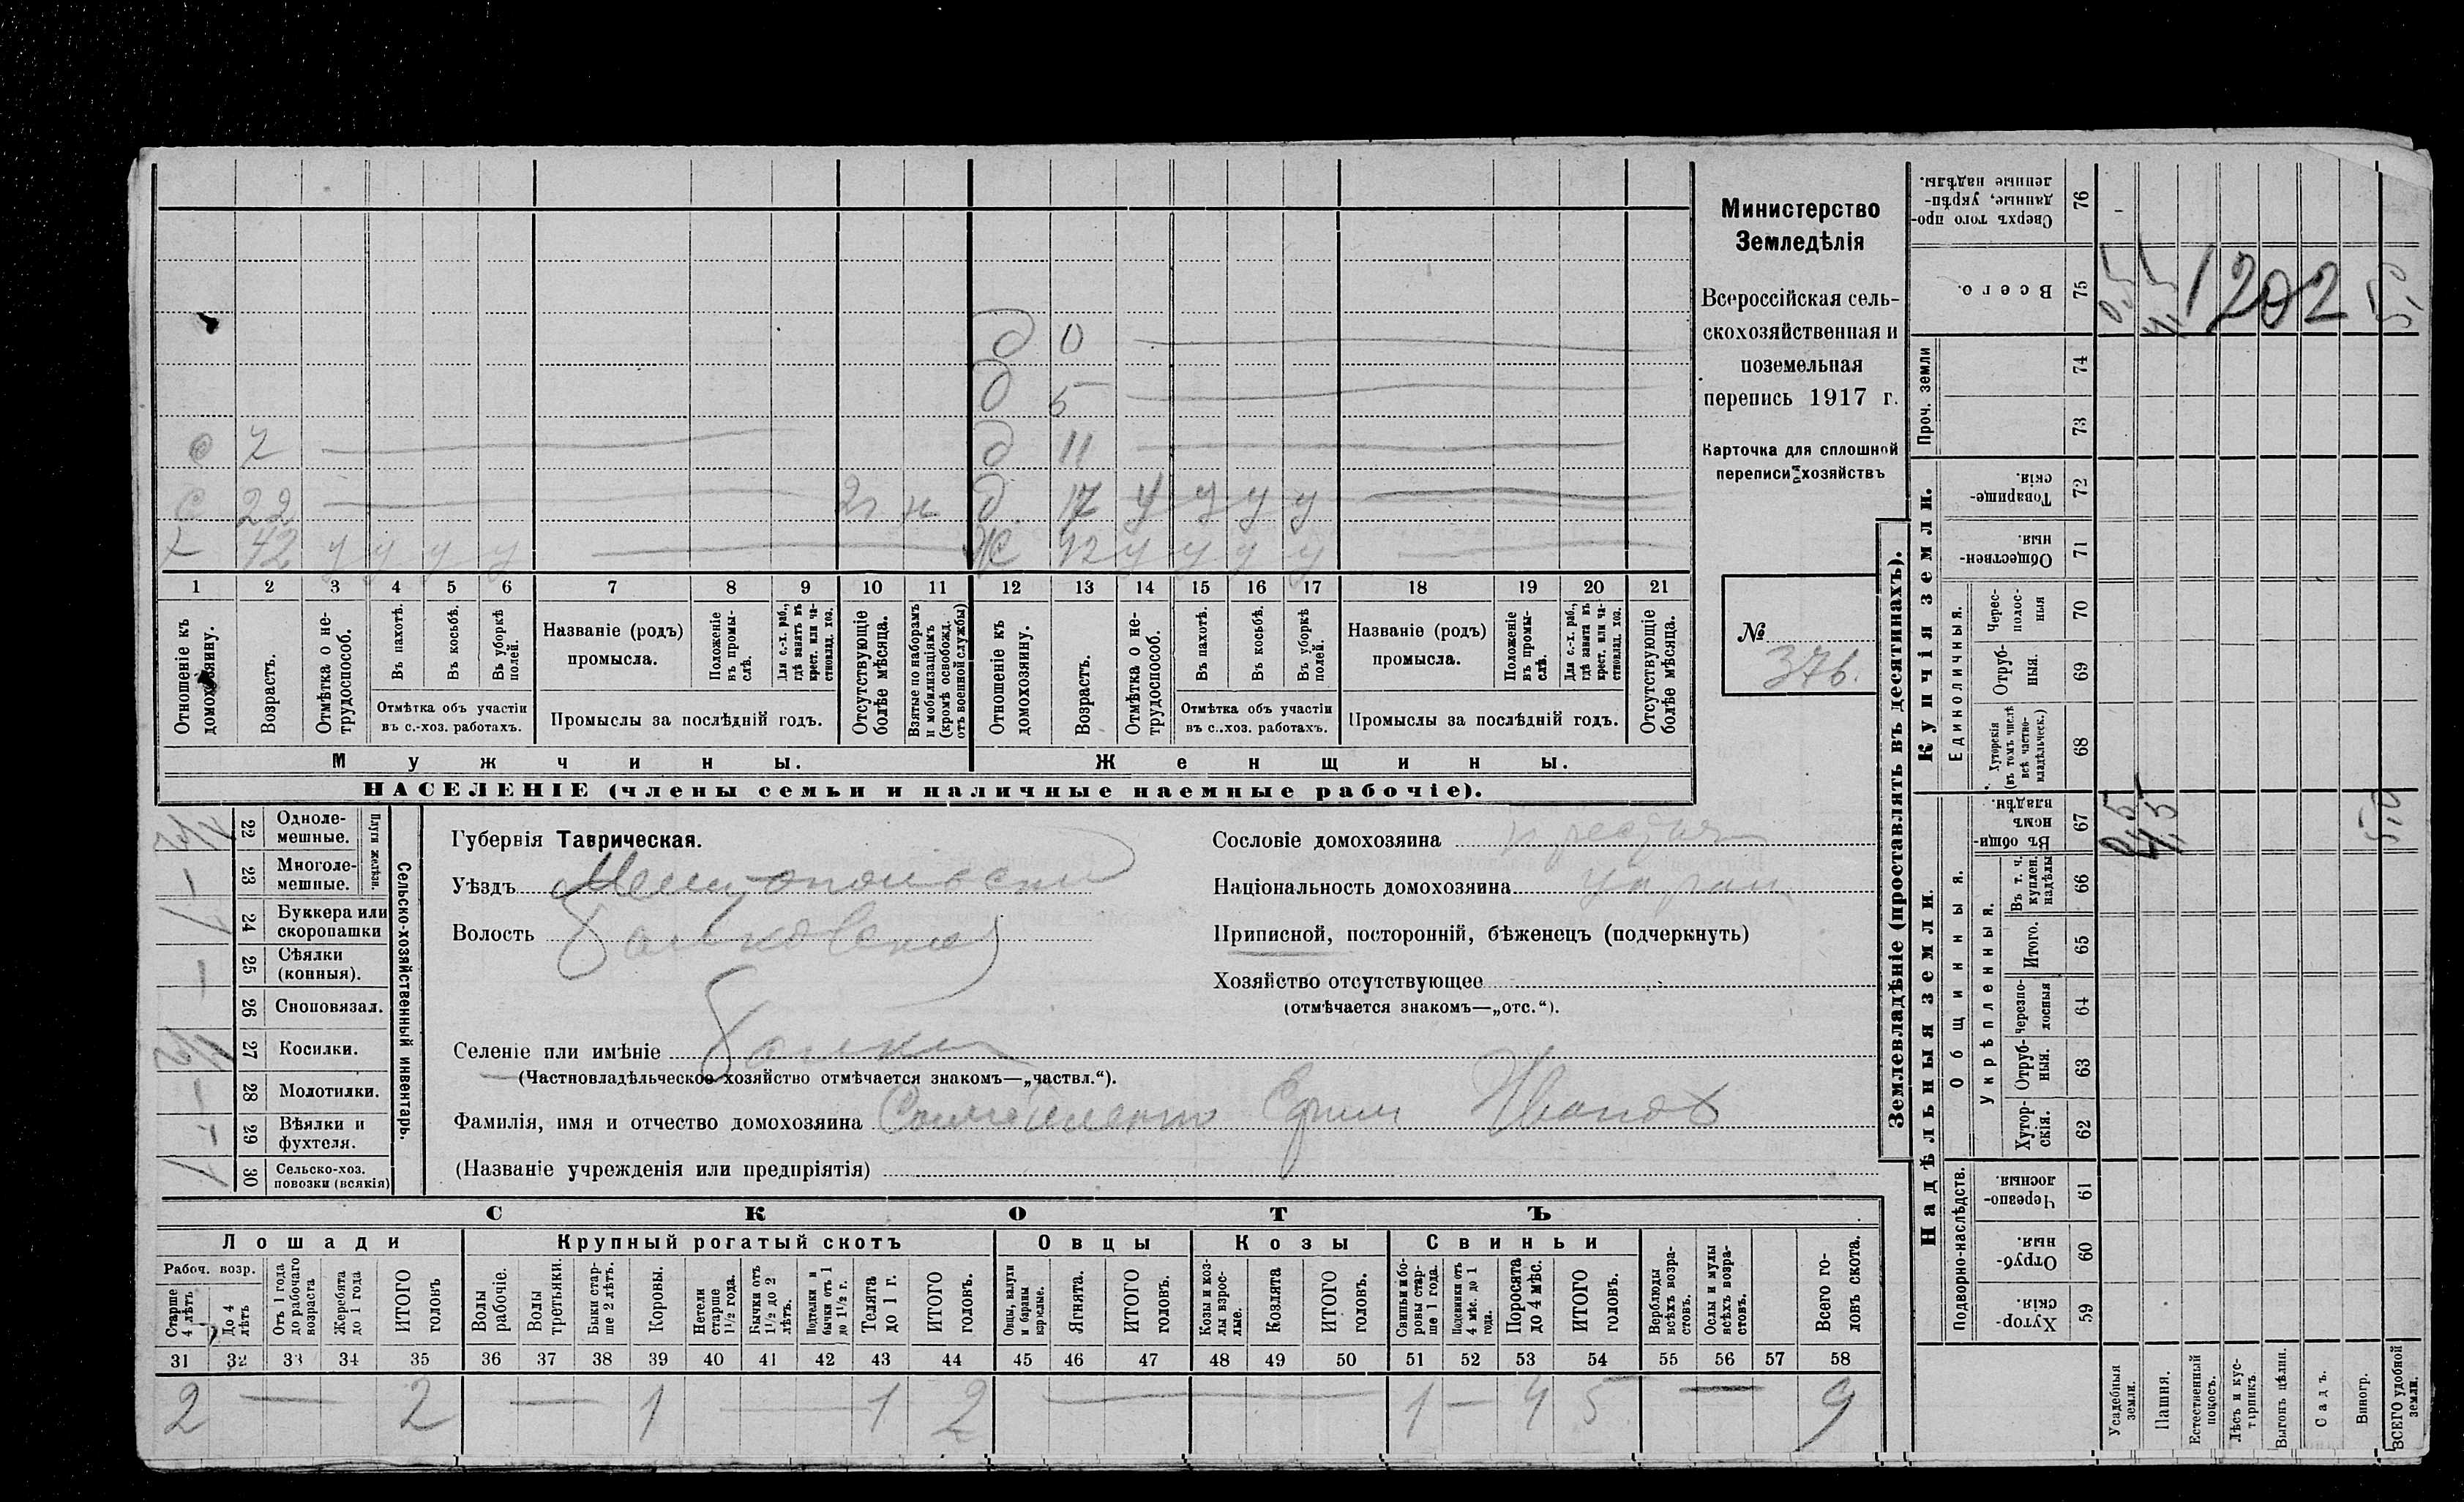 д 0
д 5
с 7 д 11
с 22 2г н д 17 у у у у
х 42 у у у у ж 42 у у у у
1 2 3 4 5 6 7 8 9 10 11 12 13 14 15 16 17 18 19 20 21
Отношеніе къ домохозяину.
Возрастъ.
Отмѣтка о нетрудоспособ.
Въ пахотѣ.
Въ косьбѣ.
Въ уборкѣ полей.
Отмѣтка объ участіи
въ с.-хоз. работахъ.
Названіе (родъ)
промысла.
Положеніе въ промы-
слѣ.
Для с.-х. раб.,
гдѣ занятъ въ
крест. или ча-
стновлад. хоз.
Промыслы за послѣдній годъ.
Отсутствующіе
болѣе мѣсяца.
Взятые по наборамъ
и мобилизаціямъ
(кромѣ освобожд.
отъ военной службы)
Отношеніе къ
домохозяину.
Возрастъ.
Отмѣтка о не-
трудоспособ.
Въ пахотѣ.
Въ косьбѣ.
Въ уборкѣ
полей.
Отмѣтка объ участіи
въ с.-хоз. работахъ.
Названіе (родъ)
промысла.
Положеніе
въ промы-
слѣ.
Для с.-х. раб.,
гдѣ занята въ
крест. или ча-
стновлад. хоз.
Промыслы за послѣдній годъ.
Отсутствующіе
болѣе мѣсяца.
Мужчины.
Женщины.
НАСЕЛЕНІЕ (члены семьи и наличные наемные рабочіе).
Министерство
Земледѣлія
Всероссійская сель-
скохозяйственная и
поземельная
перепись 1917 г.
Карточка для сплошной
переписи хозяйствъ
№
376.
Сельско-хозяйственный инвентарь.
Плуги желѣзн.
22 Одноле-
мешные.
1/2
23 Многоле-
мешные.
–
24 Буккера или
скоропашки
1
25 Сѣялки
(конныя).
–
26 Сноповязал.
27 Косилки.
1/2
28 Молотилки.
–
29 Вѣялки и
фухтеля.
–
30 Сельско-хоз.
повозки (всякія)
1
Губернія Таврическая.
Уѣздъ Мелитопольскій
Волость Балковская
Селеніе или имѣніе Балки
(Частновладѣльческое хозяйство отмѣчается знакомъ—„частвл.“).
Фамилія, имя и отчество домохозяина Ефим Иванов
(Названіе учрежденія или предпріятія)
Сословіе домохозяина крестьян
Національность домохозяина украин
Приписной, посторонній, бѣженецъ (подчеркнуть)
Хозяйство отсутствующее
(отмѣчается знакомъ—„отс.“).
СКОТЪ
Лошади
Крупный рогатый скотъ
Овцы
Козы
Свиньи
Рабоч. возр.
Старше
4 лѣтъ
До 4
лѣтъ
Отъ 1 года
до рабочаго
возраста
Жеребята
до 1 года
ИТОГО
головъ
Волы
рабочіе.
Волы
третьяки.
Быки стар-
ше 2 лѣтъ.
Коровы.
Нетели
старше
1½ года.
Бычки отъ
1½ до 2
лѣтъ.
Подтелки и
бычки отъ 1
до 1½ г.
Телята
до 1 г.
ИТОГО
головъ.
Овцы, валухи
и бараны
взрослые.
Ягнята.
ИТОГО
головъ.
Козы и коз-
лы взрос-
лые.
Козлята
ИТОГО
головъ.
Свиньи и бо-
ровы стар-
ше 1 года.
Подсвинки отъ
4 мѣс. до 1
года.
Поросята
до 4 мѣс.
ИТОГО
головъ.
Верблюды
всѣхъ возра-
стовъ.
Ослы и мулы
всѣхъ возра-
стовъ.
Всего го-
ловъ скота.
31 32 33 34 35 36 37 38 39 40 41 42 43 44 45 46 47 48 49 50 51 52 53 54 55 56 57 58
2 — 2 — 1 — 1 2 — 1 — 4 5 — 9
Землевладѣніе (проставлять въ десятинахъ).
Надѣльныя земли.
Купчія земли.
Проч. земли
Подворно-наслѣдств.
Общинныя.
Укрѣпленныя.
Единоличныя.
Сверхъ того про-
данные, укрѣп-
ленные надѣлы.
76
Всего.
75
0,5 4,5 5,0
1202
74
73
Товарище-
скія.
72
Обществен-
ныя.
71
Черес-
полос-
ныя
70
Отруб-
ныя.
69
Хуторскія
(въ томъ числѣ
всѣ частно-
владѣльческ.)
68
Въ общин-
номъ
владѣн.
67
0,5 4,5 5,0
Въ т. ч.
куплен.
надѣлы
66
Итого.
65
Черезпо-
лосныя
64
Отруб-
ныя.
63
Хутор-
скія.
62
Черезпо-
лосныя.
61
Отруб-
ныя.
60
Хутор-
скія.
59
Усадебныя
земли.
Пашня.
Естественный
покосъ.
Лѣсъ и кус-
тарникъ.
Выгонъ цѣлин.
Садъ.
Виногр.
ВСЕГО удобной
земли.